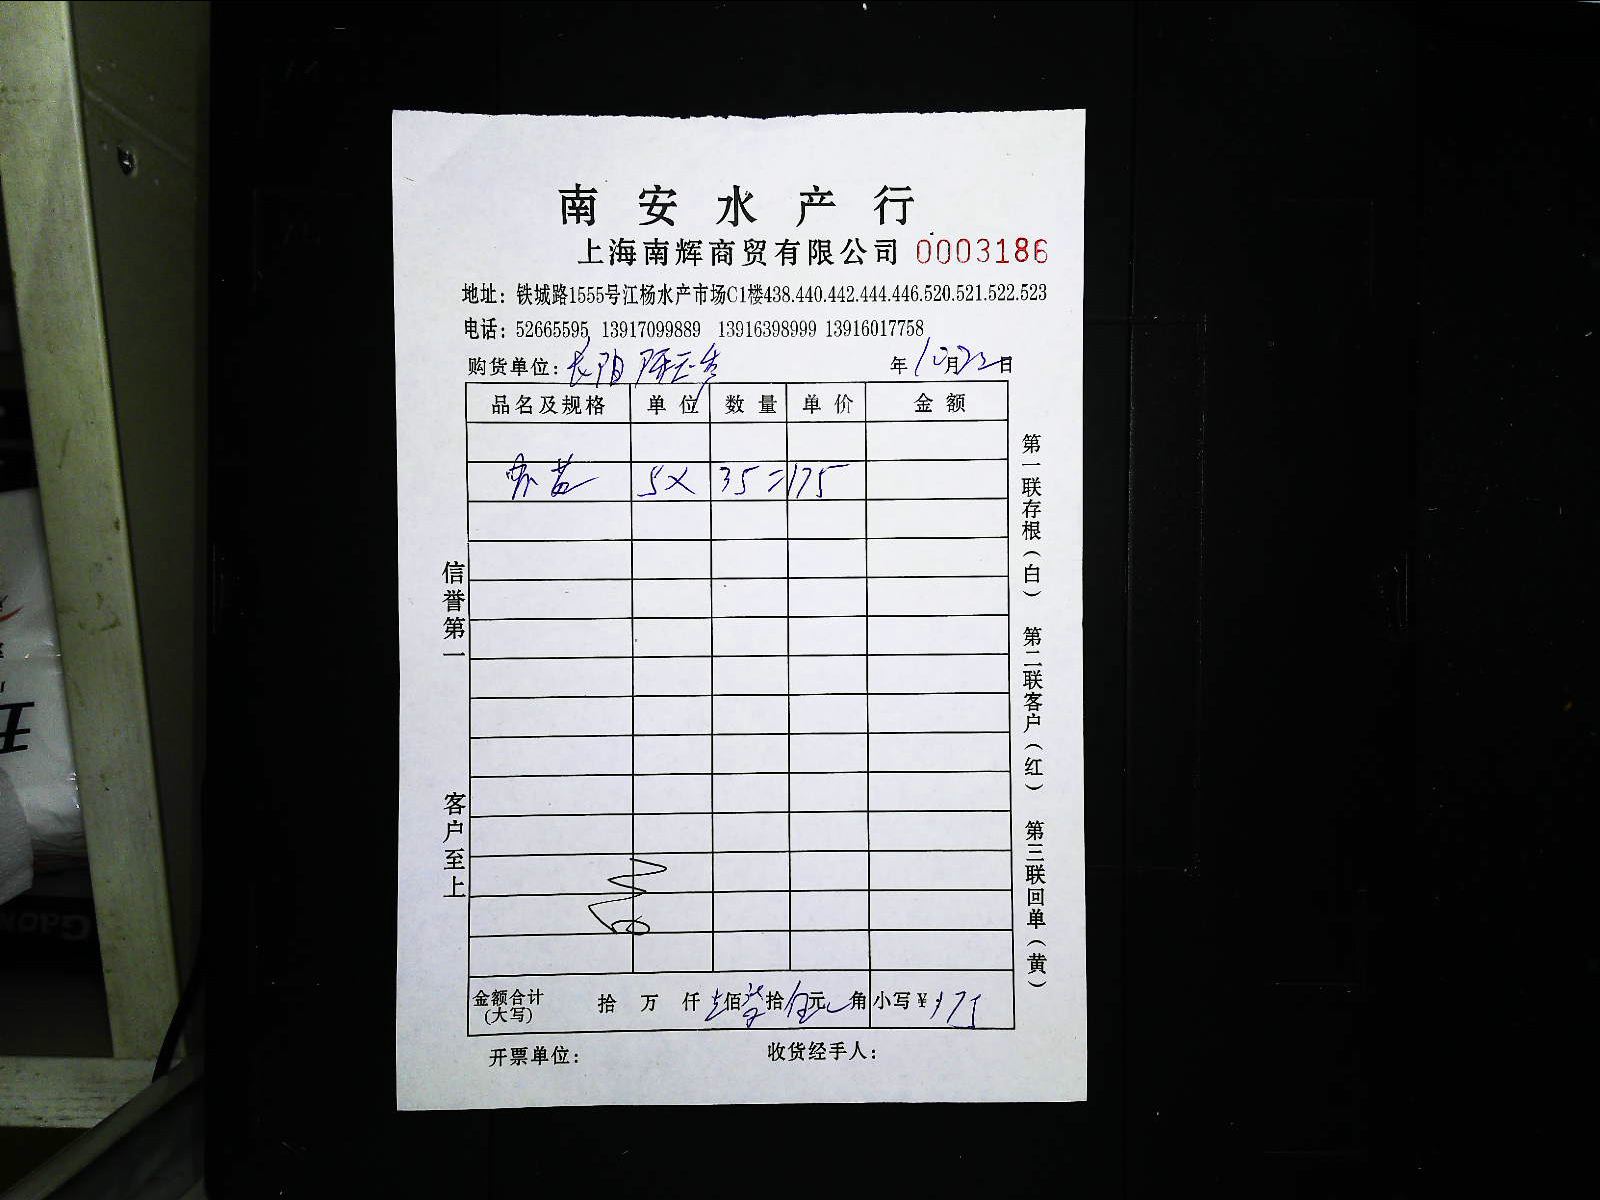 南安水产行
上海南辉商贸有限公司 0003186
地址：铁城路1555号江杨水产市场C1楼438.440.442.444.446.520.521.522.523
电话：52665595 13917099889 13916398999 13916017758
购货单位：长阳 年10月22日
品名及规格 单位 数量 单价 金额
5× 35=175
信誉第一
客户至上
第一联存根（白） 第二联客户（红） 第三联回单（黄）
金额合计（大写） 拾 万 仟 壹佰柒拾伍元 角 小写¥175
开票单位： 收货经手人：